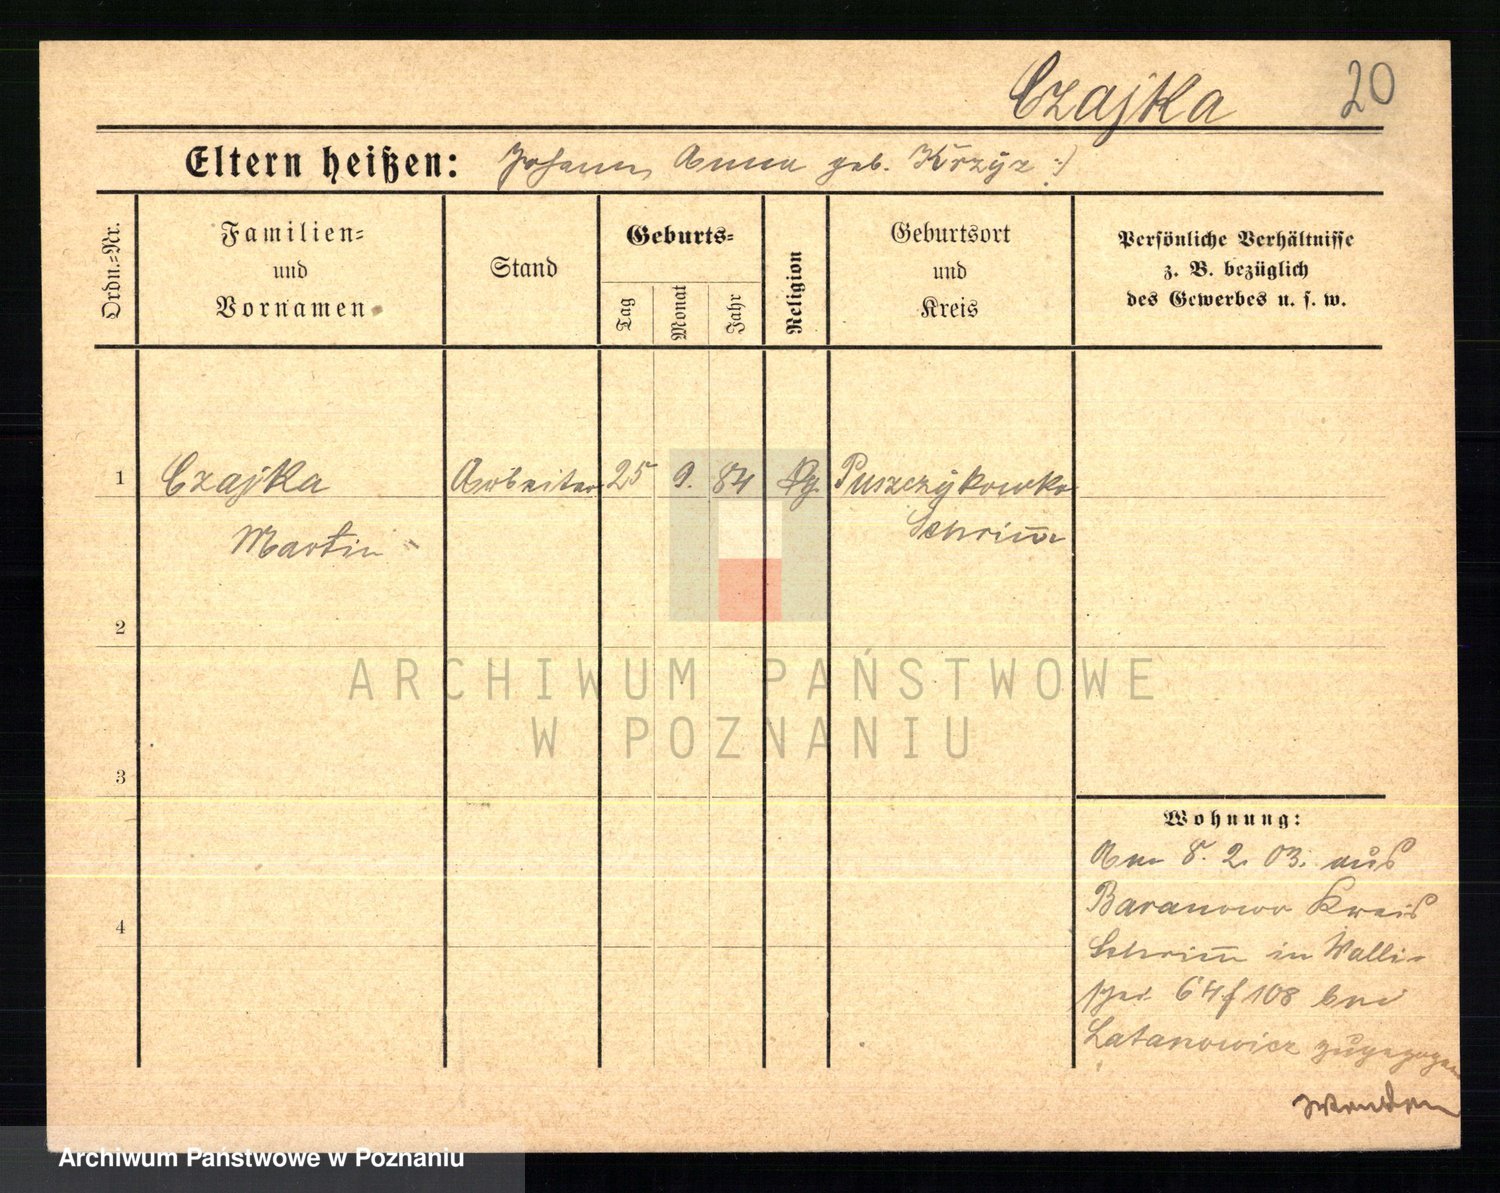 Czajka 20
Eltern heißen: Johann, Anna geb. Krzyż :/
Ordn.-Nr.
Familien-
und
Vornamen
Stand
Geburts-
Tag
Monat
Jahr
Religion
Geburtsort
und
Kreis
Persönliche Verhältnisse
z. B. bezüglich
des Gewerbes u. s. w.
1 Czajka Arbeiter 25 9. 84 Puszczykowko
Martin Schrim̄
2
3
4
Wohnung:
Am 8. 2. 03. aus
Baranowo Kreis
Schrim̄ in Walli-
schei 64/108 bei
Latanowicz zugezogen
wenden
ARCHIWUM PAŃSTWOWE
W POZNANIU
Archiwum Państwowe w Poznaniu